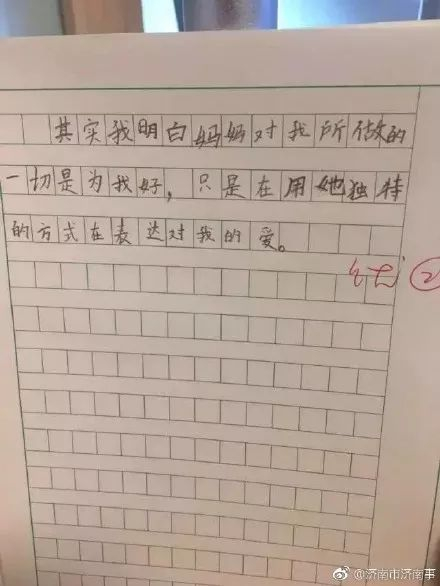 其实我明白妈妈对我所做的
一切是为我好，只是在用她独特
的方式在表达对我的爱。
优 2
@济南市济南事